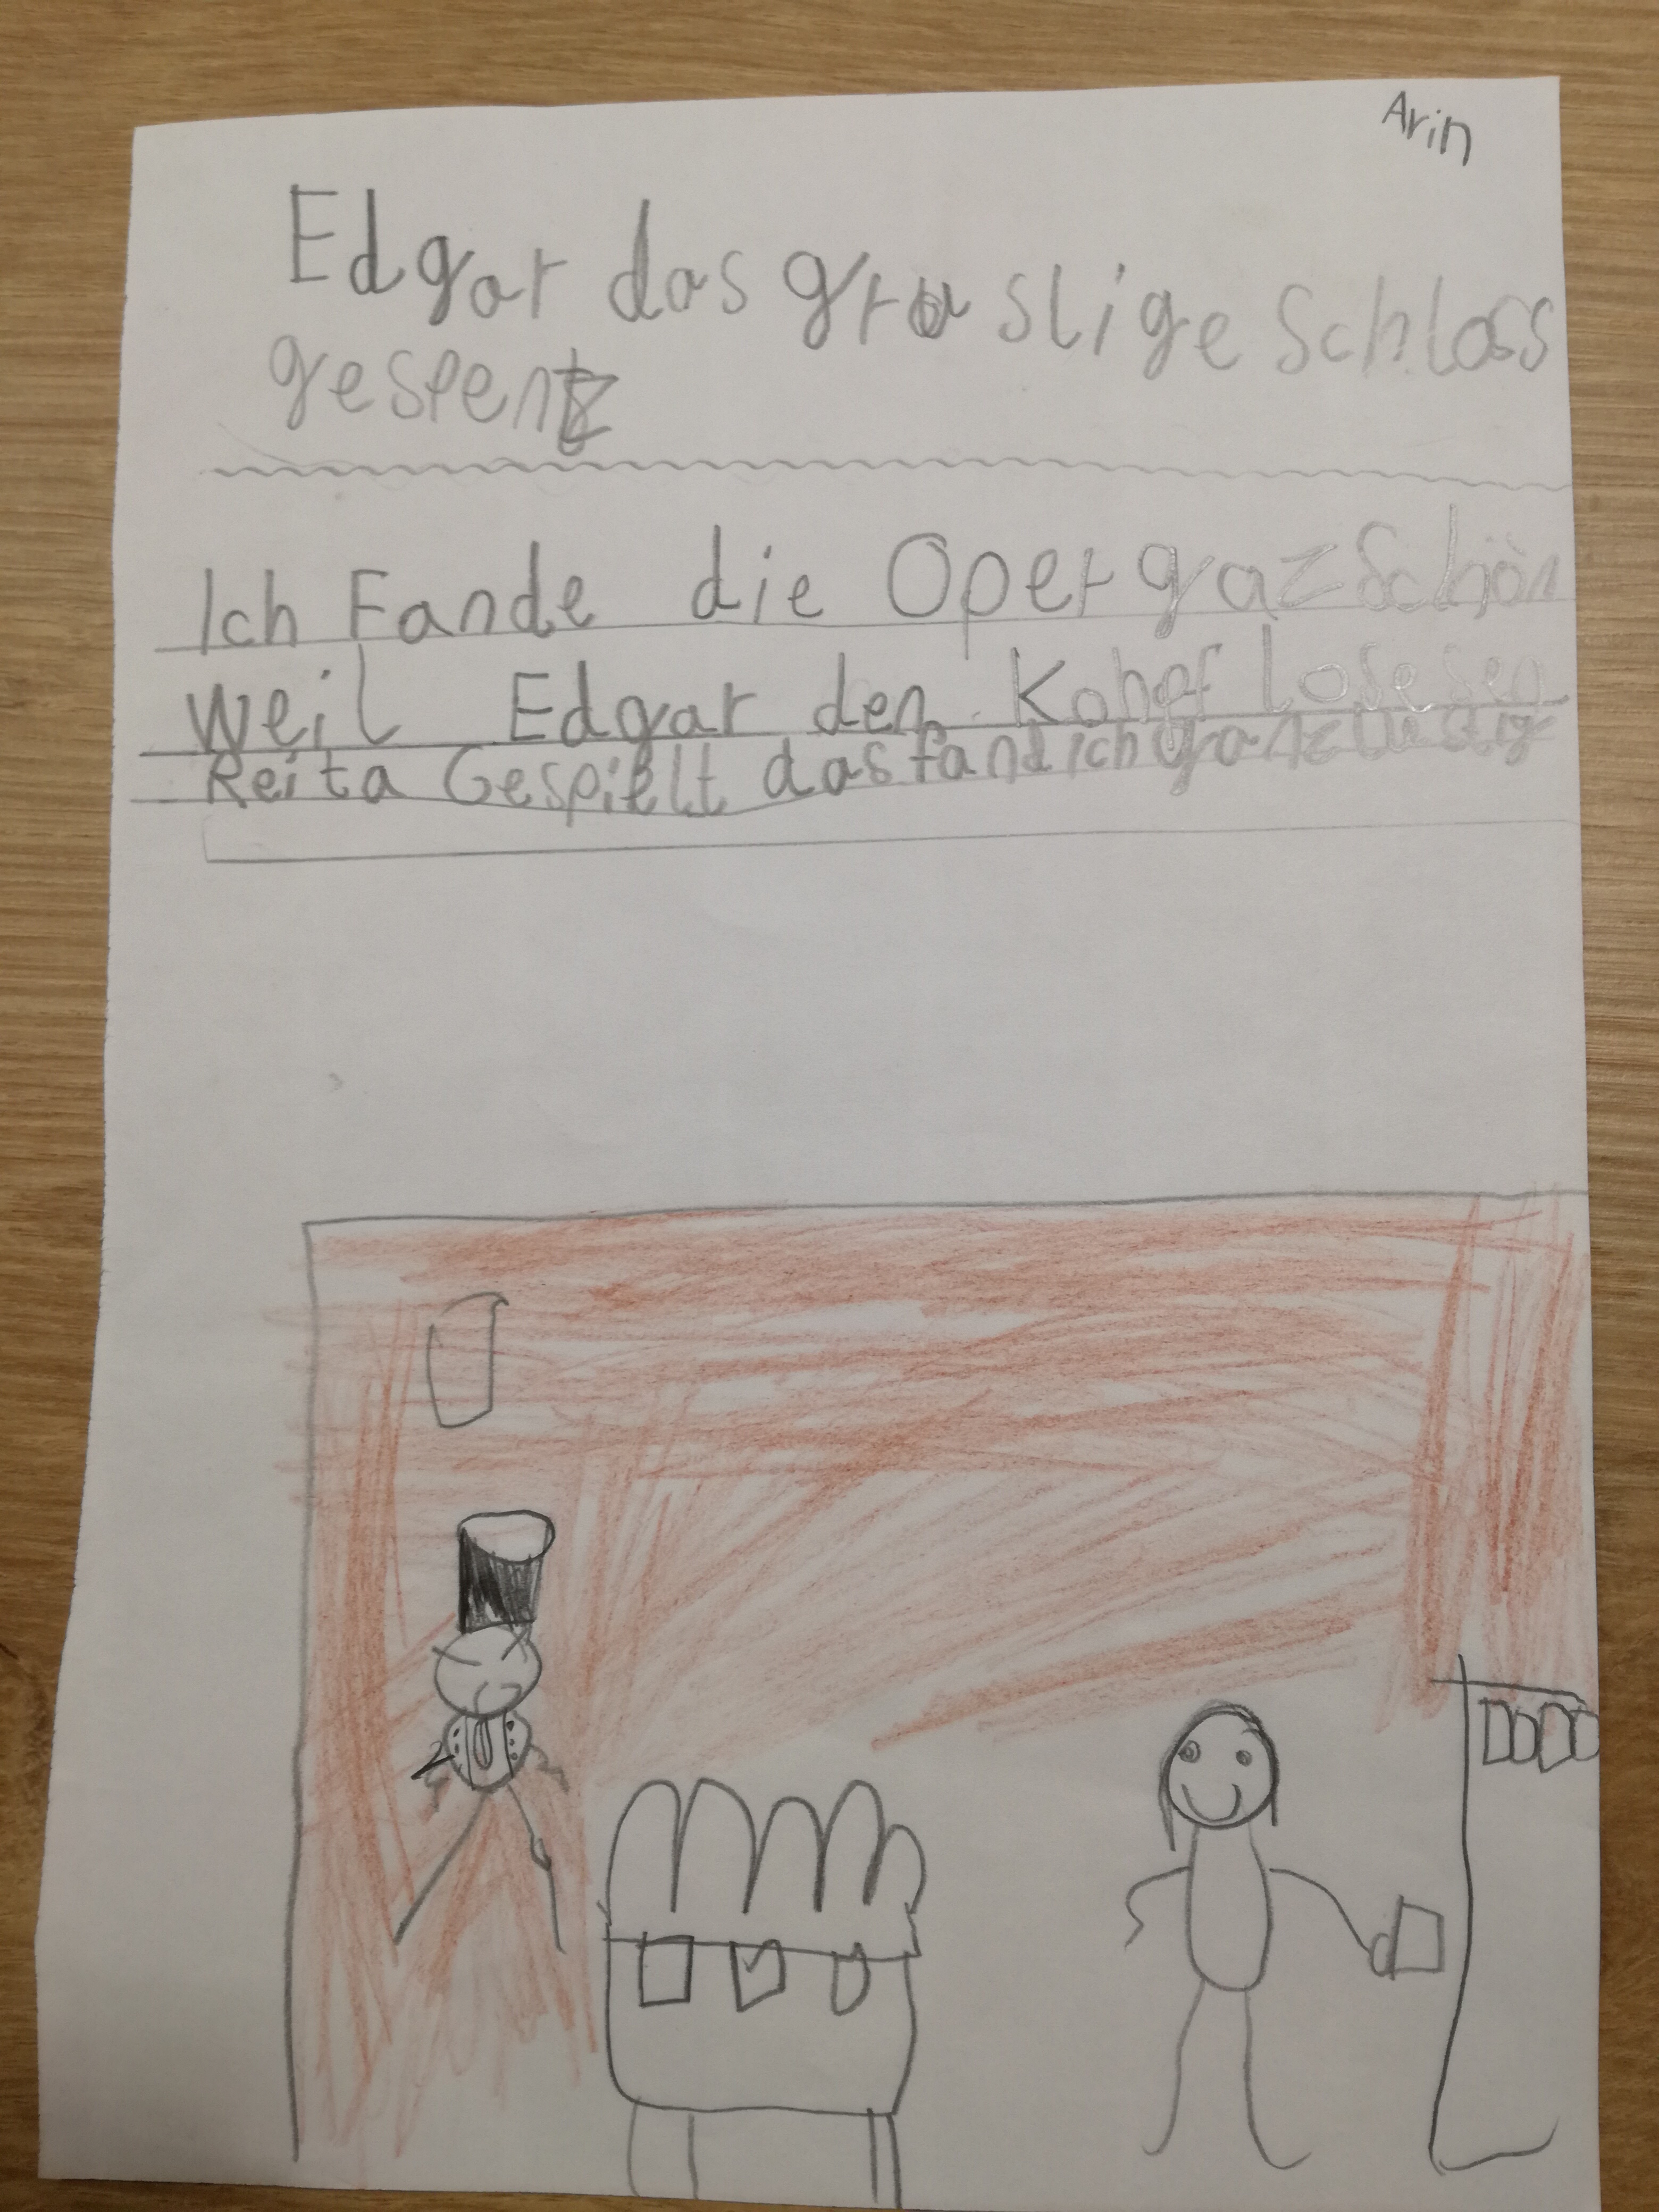 Arin
Edgar das gruslige Schloss
gespentz
Ich Fande die Oper gaz Schön
weil Edgar den Kohpf losesen
Reita Gespielt das fand ich ganz lustig